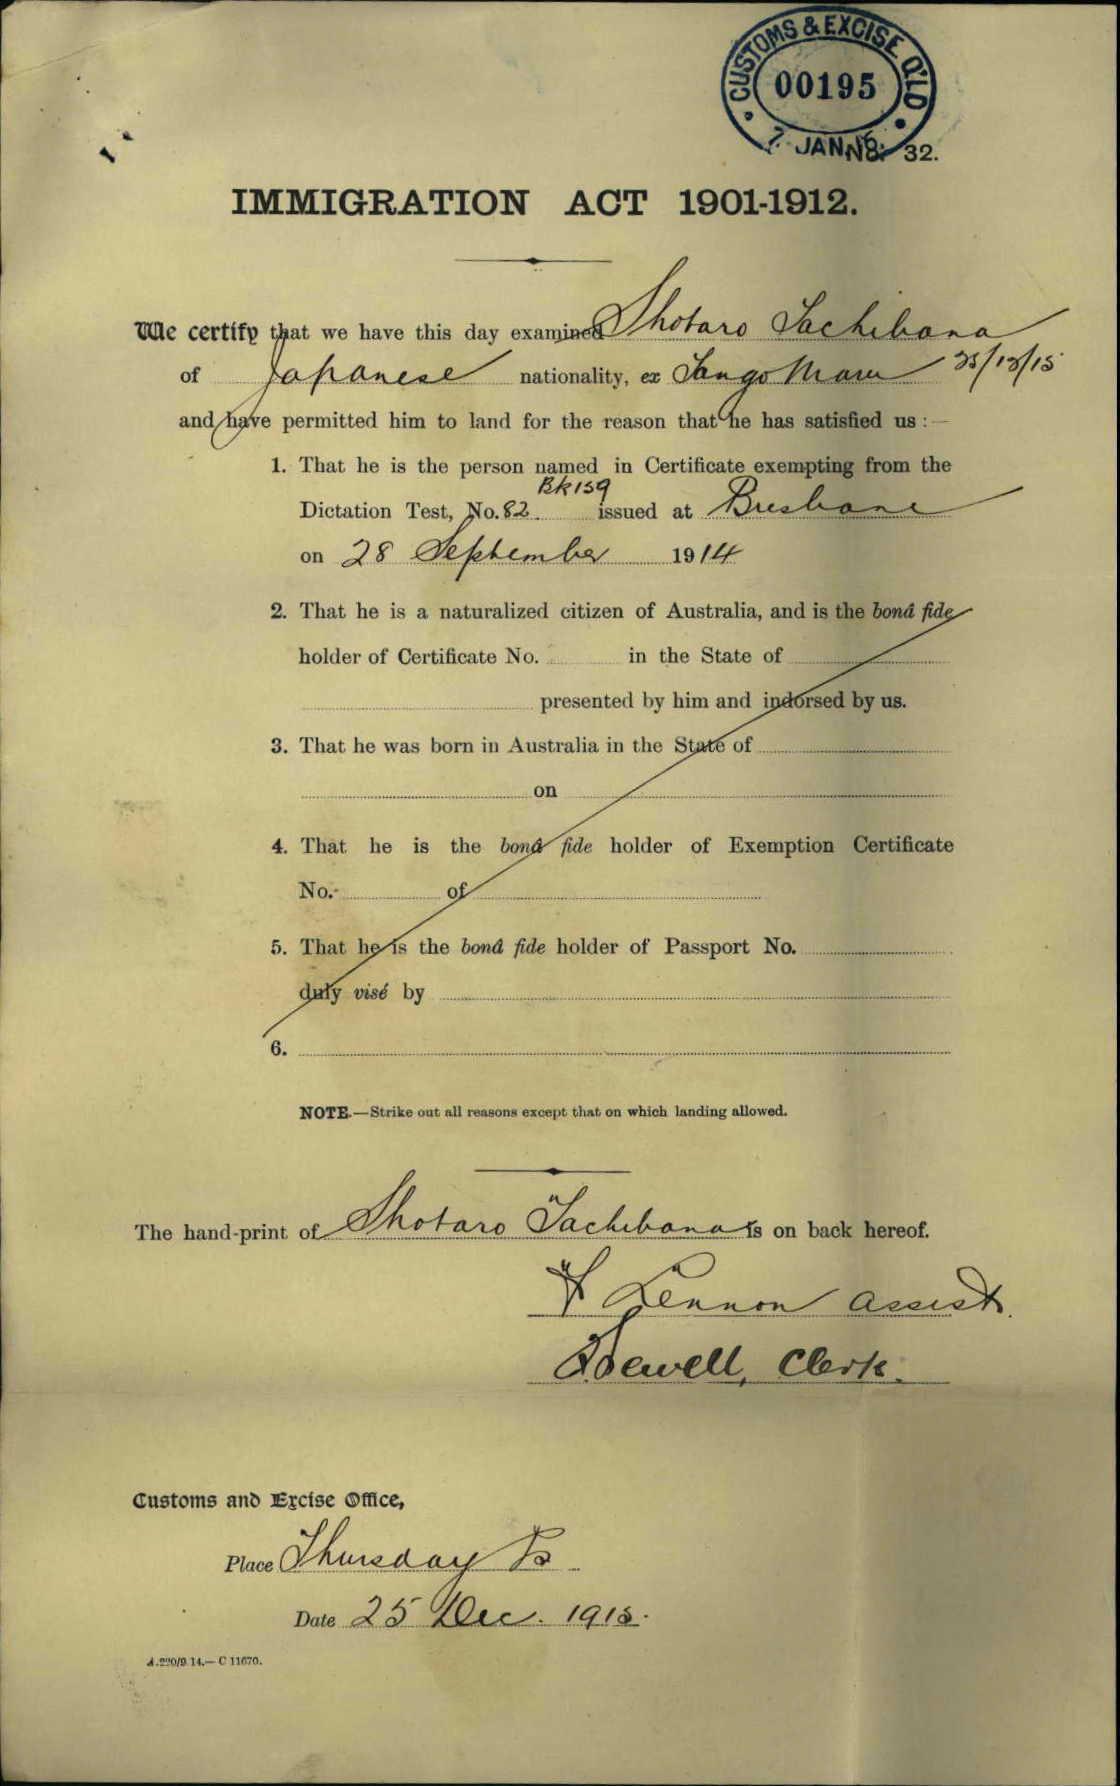 CUSTOMS & EXCISE Q'LD
00195
7 JAN
No. 32.
IMMIGRATION ACT 1901-1912.
We certify that we have this day examined Shotaro Tachibana
of Japanese nationality, ex Tango Maru 25/12/15
and have permitted him to land for the reason that he has satisfied us :—
1. That he is the person named in Certificate exempting from the
Bk 159
Dictation Test, No. 82 issued at Brisbane
on 28 September 1914
2. That he is a naturalized citizen of Australia, and is the bonâ fide
holder of Certificate No. in the State of
presented by him and indorsed by us.
3. That he was born in Australia in the State of
on
4. That he is the bonâ fide holder of Exemption Certificate
No. of
5. That he is the bonâ fide holder of Passport No.
duly visé by
6.
NOTE.—Strike out all reasons except that on which landing allowed.
The hand-print of Shotaro Tachibana is on back hereof.
Lennon Assist.
Sewell, Clerk.
Customs and Excise Office,
Place Thursday Is
Date 25 Dec. 1915.
A.220/9.14.—C 11670.